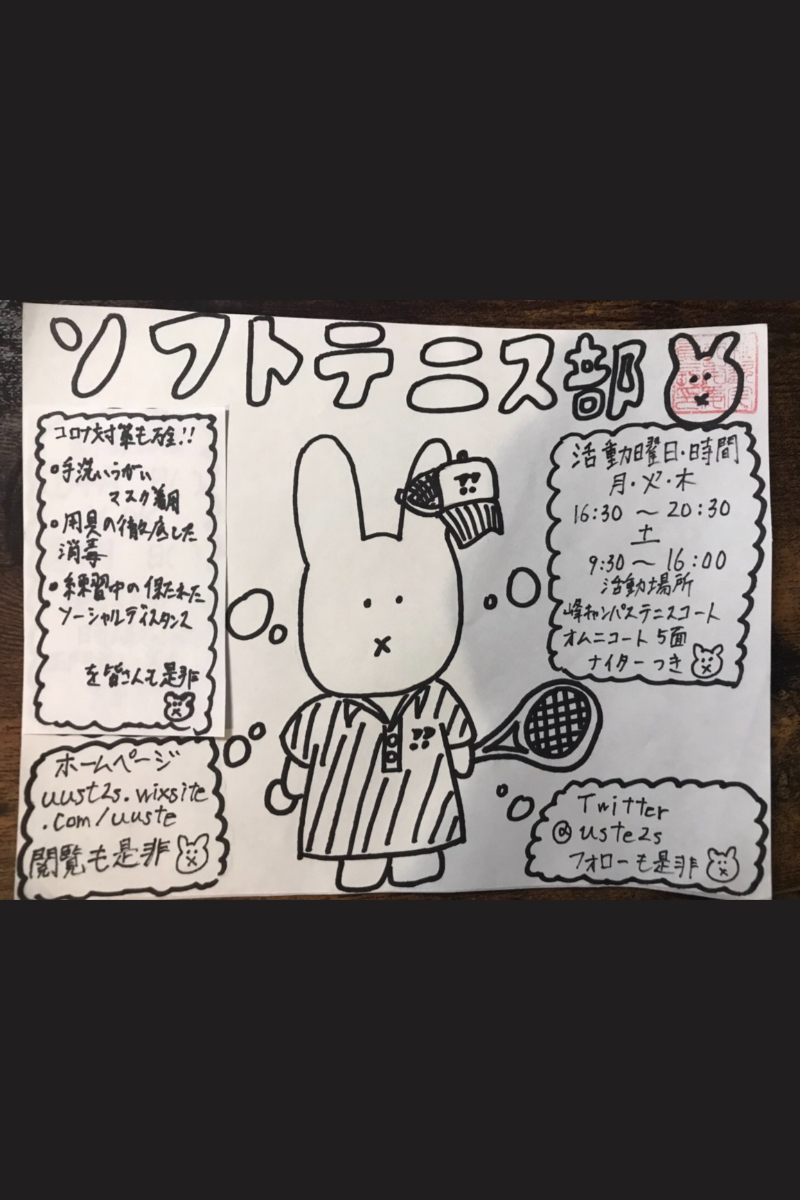 ソフトテニス部
コロナ対策も万全!!
●手洗いうがい
マスク着用
●用具の徹底した
消毒
●練習中の保たれた
ソーシャルディスタンス
を皆さんも是非
活動曜日・時間
月・火・木
16:30 〜 20:30
土
9:30 〜 16:00
活動場所
峰キャンパステニスコート
オムニコート 5面
ナイターつき
ホームページ
uust2s.wixsite
.com/uuste
閲覧も是非
Twitter
@uste2s
フォローも是非